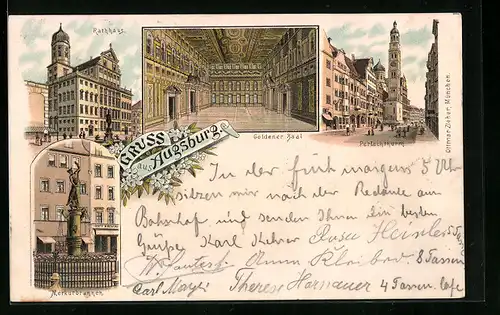 Rathhaus.
Goldener Saal
Perlachthurm.
Ottmar Zieher, München.
GRUSS
aus Augsburg
Merkurbrunnen
In der früh morgens 5 Uhr
sitzen wir nach der Redoute am
Bahnhof und senden Ihnen die besten
Grüße Karl Rosa
Anna 8 Tassen
Carl Mayr Therese Hornauer 4 Tassen Cafe